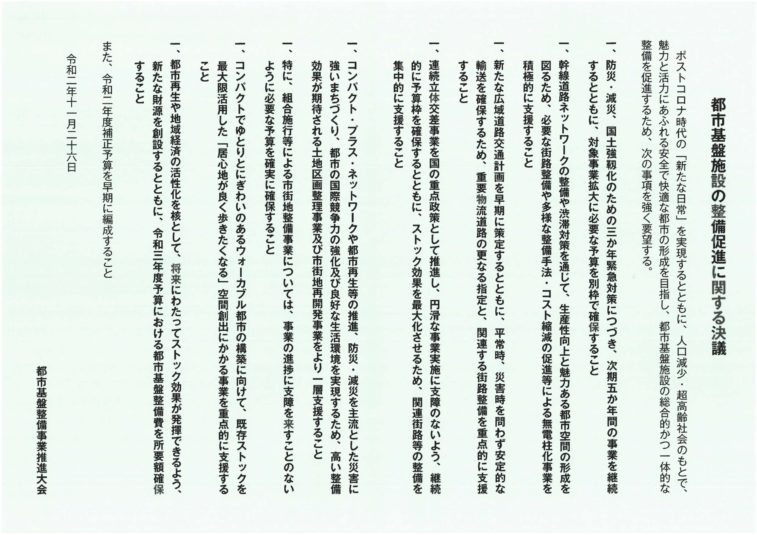 都市基盤施設の整備促進に関する決議
ポストコロナ時代の「新たな日常」を実現するとともに、人口減少・超高齢社会のもとで、
魅力と活力にあふれる安全で快適な都市の形成を目指し、都市基盤施設の総合的かつ一体的な
整備を促進するため、次の事項を強く要望する。
一、防災・減災、国土強靱化のための三か年緊急対策につづき、次期五か年間の事業を継続
するとともに、対象事業拡大に必要な予算を別枠で確保すること
一、幹線道路ネットワークの整備や渋滞対策を通じて、生産性向上と魅力ある都市空間の形成を
図るため、必要な街路整備や多様な整備手法・コスト縮減の促進等による無電柱化事業を
積極的に支援すること
一、新たな広域道路交通計画を早期に策定するとともに、平常時、災害時を問わず安定的な
輸送を確保するため、重要物流道路の更なる指定と、関連する街路整備を重点的に支援
すること
一、連続立体交差事業を国の重点政策として推進し、円滑な事業実施に支障のないよう、継続
的に予算枠を確保するとともに、ストック効果を最大化させるため、関連街路等の整備を
集中的に支援すること
一、コンパクト・プラス・ネットワークや都市再生等の推進、防災・減災を主流とした災害に
強いまちづくり、都市の国際競争力の強化及び良好な生活環境を実現するため、高い整備
効果が期待される土地区画整理事業及び市街地再開発事業をより一層支援すること
一、特に、組合施行等による市街地整備事業については、事業の進捗に支障を来すことのない
ように必要な予算を確実に確保すること
一、コンパクトでゆとりとにぎわいのあるウォーカブル都市の構築に向けて、既存ストックを
最大限活用した「居心地が良く歩きたくなる」空間創出にかかる事業を重点的に支援する
こと
一、都市再生や地域経済の活性化を核として、将来にわたってストック効果が発揮できるよう、
新たな財源を創設するとともに、令和三年度予算における都市基盤整備費を所要額確保
すること
また、令和二年度補正予算を早期に編成すること
令和二年十一月二十六日
都市基盤整備事業推進大会